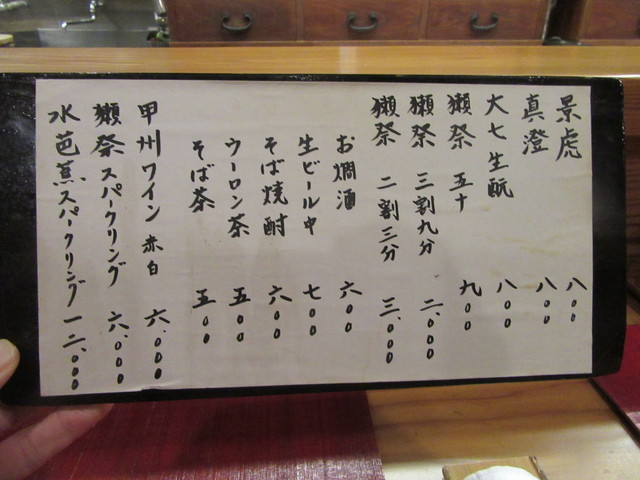 景虎 八〇〇
真澄 八〇〇
大七生酛 八〇〇
獺祭 五十 九〇〇
獺祭 三割九分 二、〇〇〇
獺祭 二割三分 三、〇〇〇
お燗酒 六〇〇
生ビール中 七〇〇
そば焼酎 六〇〇
ウーロン茶 五〇〇
そば茶 五〇〇
甲州ワイン 赤白 六、〇〇〇
獺祭スパークリング 六、〇〇〇
水芭蕉スパークリング 一二、〇〇〇